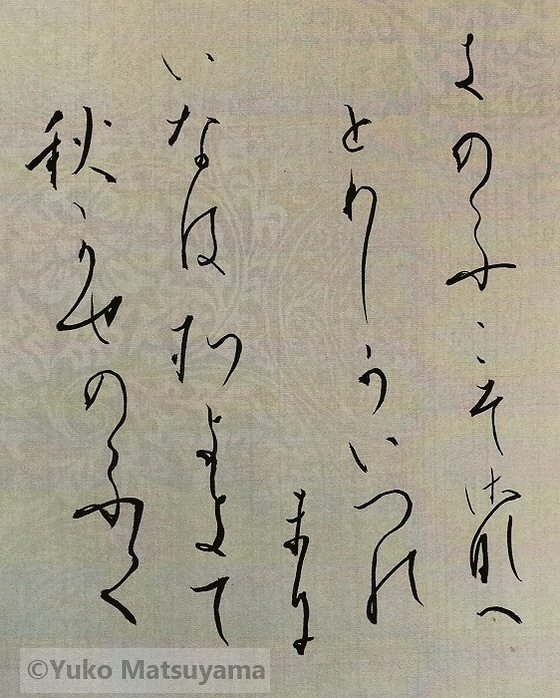 きのふこそさなへ
とりしかいつの
まに
いなはそよきて
秋かせのふく
©Yuko Matsuyama